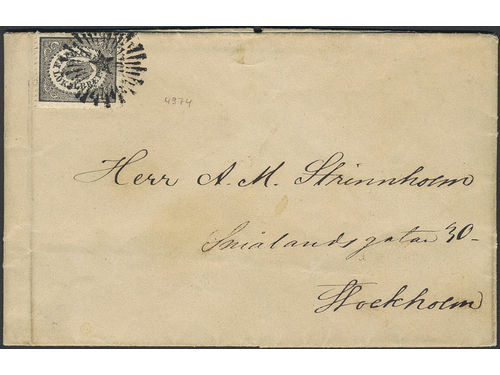 4974
Herr A. M. Strinnholm
Smålandsgatan 30-
Stockholm